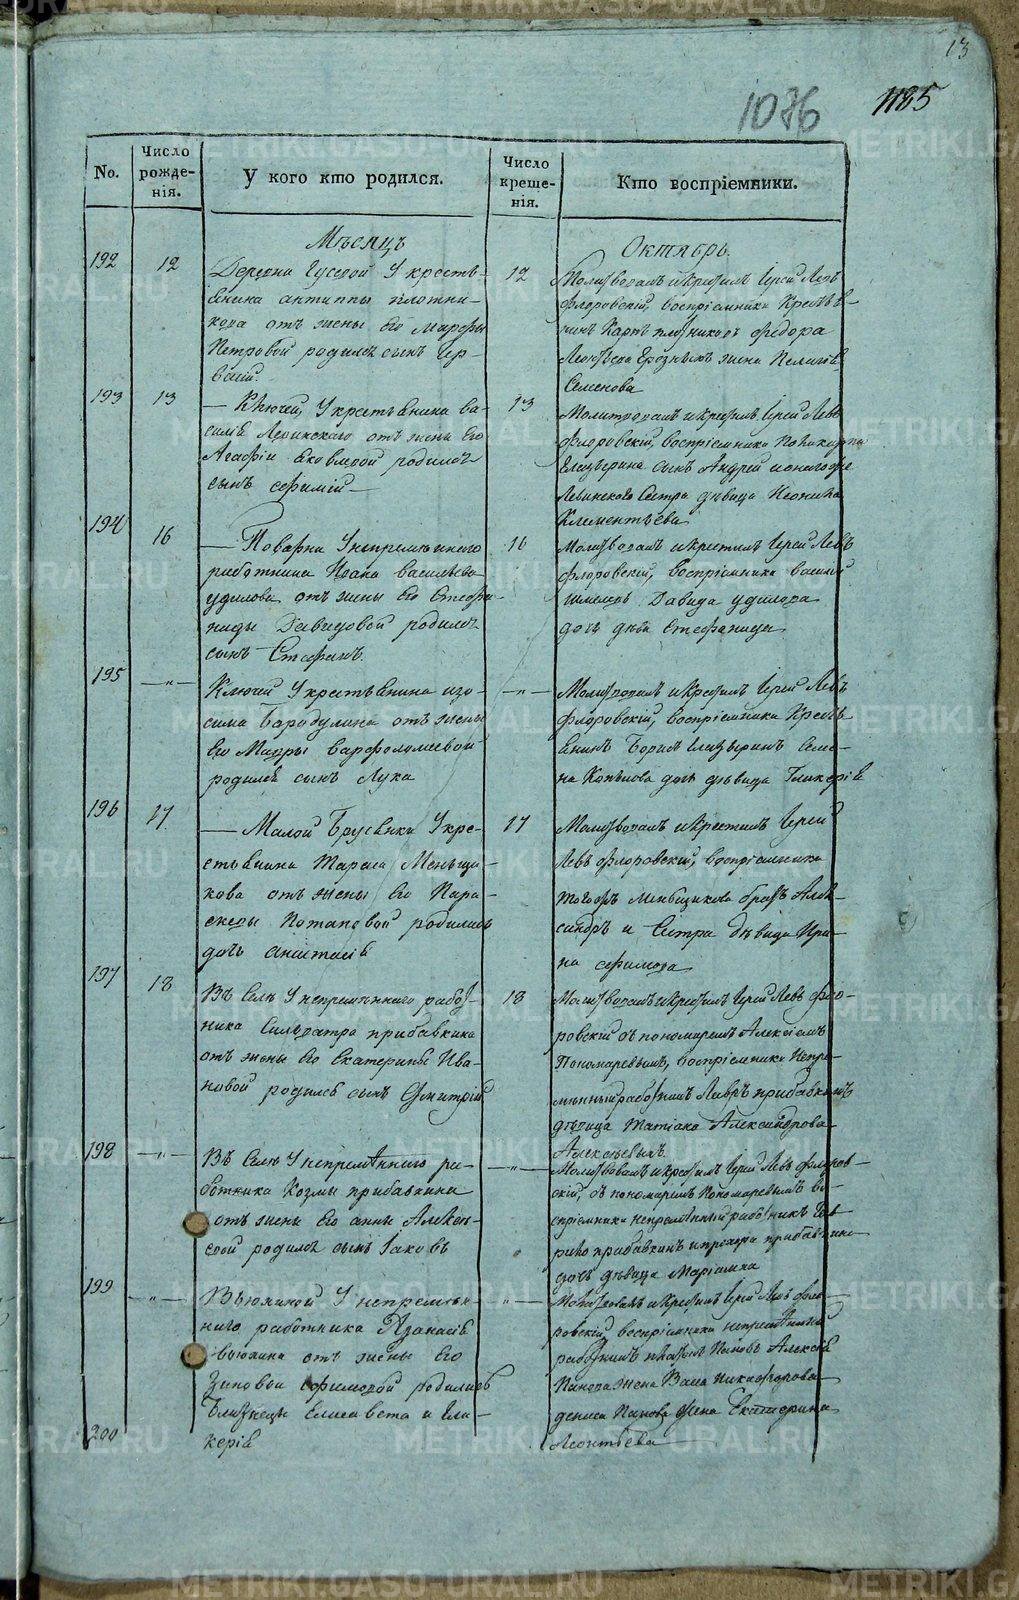 13
1076
1185
No.
Число рожде-нія.
У кого кто родился.
Число креще-нія.
Кто воспріемники.
Мѣсяцъ
Октябрь.
192
12
Деревни Гусевой У кресть-
янина антиппы плотни-
кова отъ жены Его Марфы
Петровой родился сынъ Гер-
васій.
12
Молитвовалъ и крестилъ Іерей Левъ
Флоровскій, воспріемники Крестья-
нинъ Карпъ плотниковъ Федора
жена Пелагія
Семенова
193
13
— Ключей, У крестьянина ва-
силія Левинскаго отъ жены Его
Агафіи Яковлевой родился
сынъ Ефимій —
13
Молитвовалъ и крестилъ Іерей Левъ
Флоровскій, воспріемники Поликарпа
Елизверина сынъ Андрей и онагоже
Левинскаго Сестра дѣвица Неонила
Клементьева
194
16
— Поварни У непремѣннаго
работника Іоана васильева
удилова отъ жены Его Стефа-
ниды Давидовой родился
сынъ Стефанъ.
16
Молитвовалъ и крестилъ Іерей Левъ
Флоровскій, воспріемники василій
Давида удилова
дочь дѣва Стефанида
195
— " —
Ключей У крестьянина изо-
сима Бородулина отъ жены
Его Мавры варфоломеевой
родился сынъ Лука
— " —
Молитвовалъ и крестилъ Іерей Левъ
Флоровскій, воспріемники Кресть-
янинъ Борисъ Елизверинъ Семе-
на Копылова дочь дѣвица Гликерія
196
17
— Малой Брусянки У кре-
стьянина Тараса Меньщи-
кова отъ жены Его Пара-
скевы Потаповой родилась
дочь анастасія
17
Молитвовалъ и крестилъ Іерей
Левъ Флоровскій, воспріемники
тогожъ Меньщикова братъ Алек-
сандръ и Сестра дѣвица Ири-
на Ефимова
197
18
Въ Селѣ У непремѣннаго работ-
ника Сильватра прибавкина
отъ жены Его Екатерины Ива-
новой родился сынъ Дмитрій
18
Молитвовалъ и крестилъ Іерей Левъ Фло-
ровскій съ пономаремъ Алексіемъ
Пономаревымъ, воспріемники Непре-
мѣнный работникъ Лавръ прибавкинъ
дѣвица Татіана Александрова
Алексѣевыхъ.
198
— " —
Въ Селѣ У непремѣннаго ра-
ботника Козмы прибавкина
отъ жены Его анны Алексѣ-
евой родился сынъ Іаковъ
— " —
Молитвовалъ и крестилъ Іерей Левъ Флоров-
скій, съ пономаремъ Пономаревымъ во-
спріемники непремѣнный работникъ Гав-
рило прибавкинъ и прибавкина
дочь дѣвица Маріамна
199
— " —
Вьюхиной У непремѣн-
наго работника Афанасія
вьюхина отъ жены Его
Зиновіи Ефимовой родились
Близнецы Елисавета и Гли-
керія
200
— " —
Молитвовалъ и крестилъ Іерей Левъ Фло-
ровскій, воспріемники непремѣнный
работникъ Пановъ Алексѣя
Панова жена Васса Никифорова
дениса Панова жена Екатерина
Леонтьева